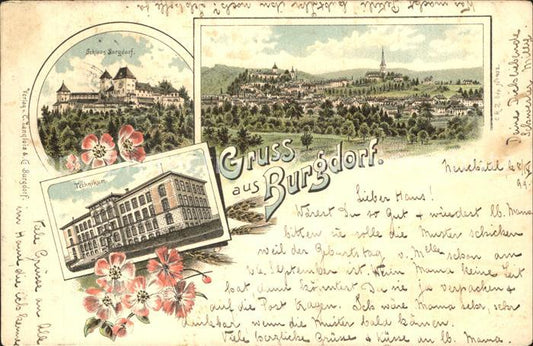 Schloss Burgdorf.
Technikum
Gruss
aus Burgdorf.
Verlag v. C. Langlois & Cie Burgdorf.
Neuchâtel
Lieber Hans!
Wärest Du so gut & würdest lb. Mama
bitten sie solle die Muster schicken
weil der Geburtstag v. Mlle schon am
September ist. Wenn Mama keine Zeit
hat dann könntest Du sie ja verpacken &
auf die Post tragen. Ich wäre Mama sehr, sehr
dankbar wenn die Muster bald kämen.
Viele herzliche Grüsse & Küsse an lb. Mama.
Viele Grüsse an alle
im Hause, die
Deine Dich liebende
Schwester